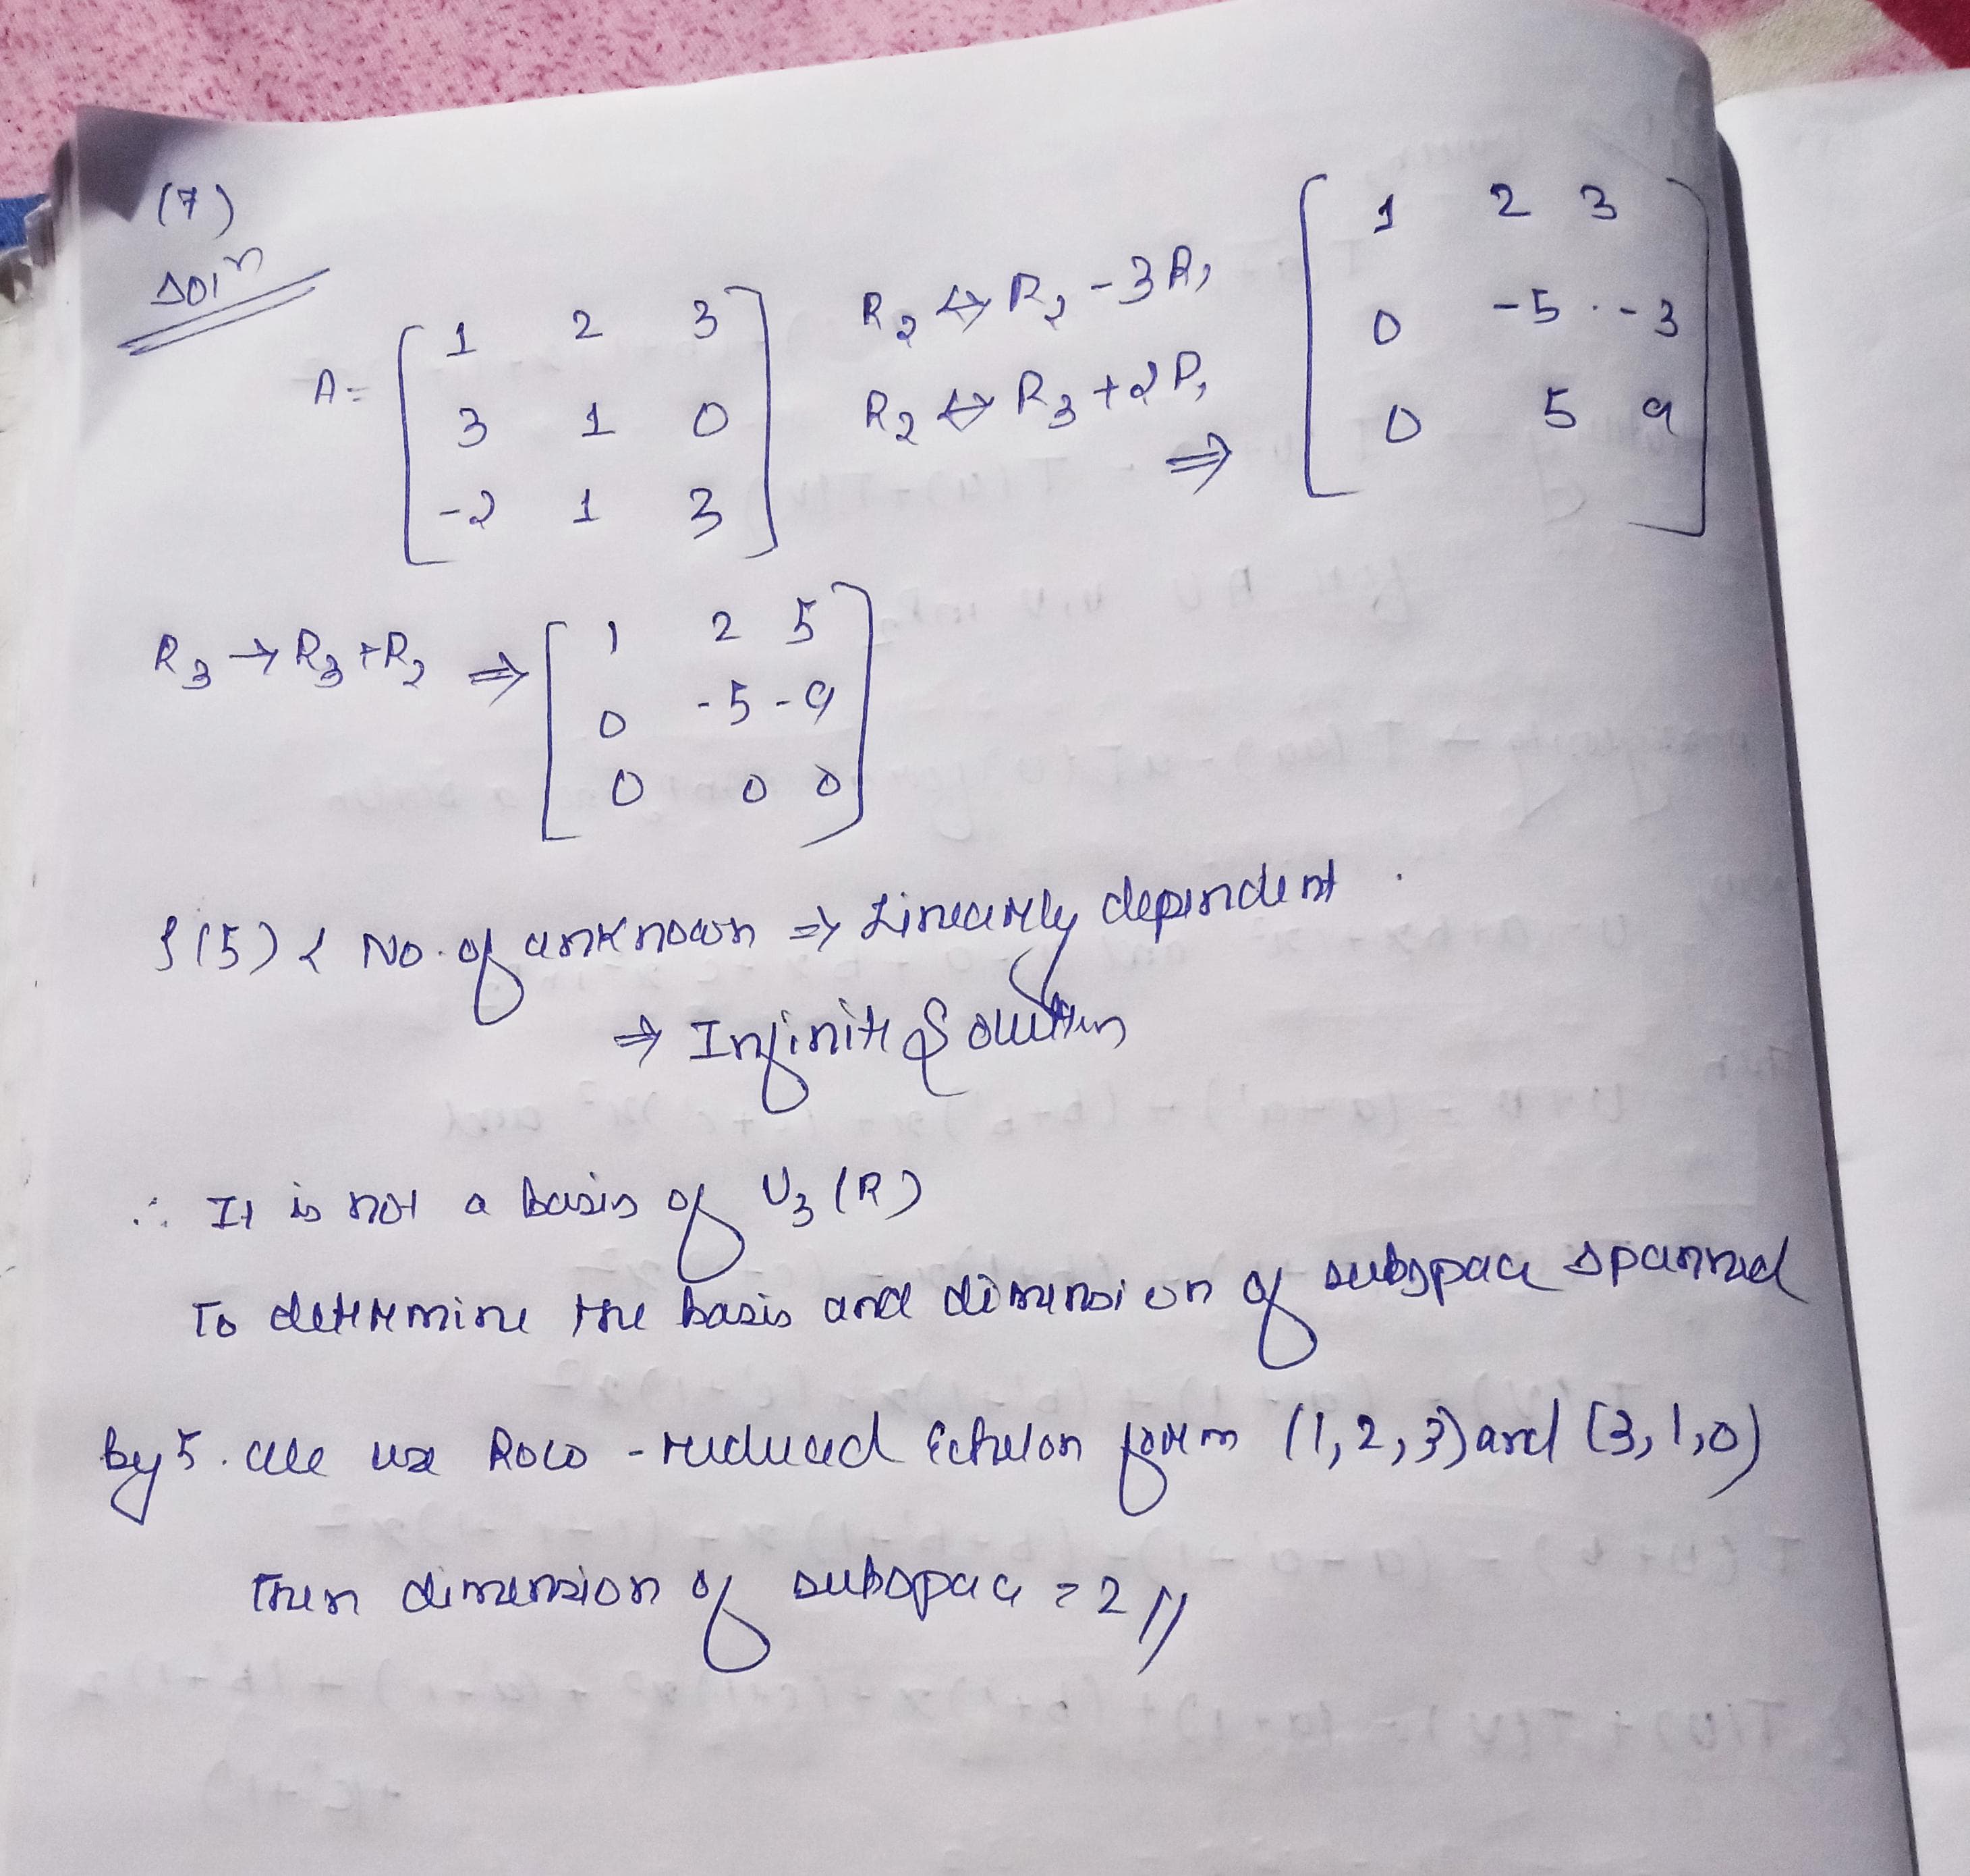 (7)
Soln
A = [ 1 2 3
3 1 0
-2 1 3 ]
R2 ↔ R2 - 3R1
R2 ↔ R3 + 2R1
⇒ [ 1 2 3
0 -5 -3
0 5 9 ]
R3 → R3 + R2 ⇒ [ 1 2 5
0 -5 -9
0 0 0 ]
ρ(5) < No. of unknown ⇒ Linearly dependent
⇒ Infinite Solution
∴ It is not a basis of V3 (R)
To determine the basis and dimension of subspace spanned
by 5. We use Row - reduced Echelon form (1, 2, 3) and (3, 1, 0)
Then dimension of subspace = 2 //